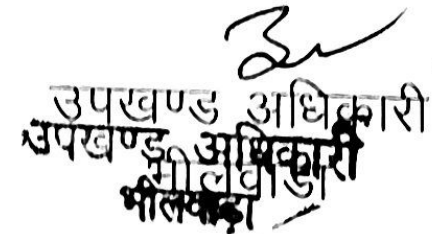 उपखण्ड अधिकारी
उपखण्ड अधिकारी
भीलवाड़ा
भीलवाड़ा